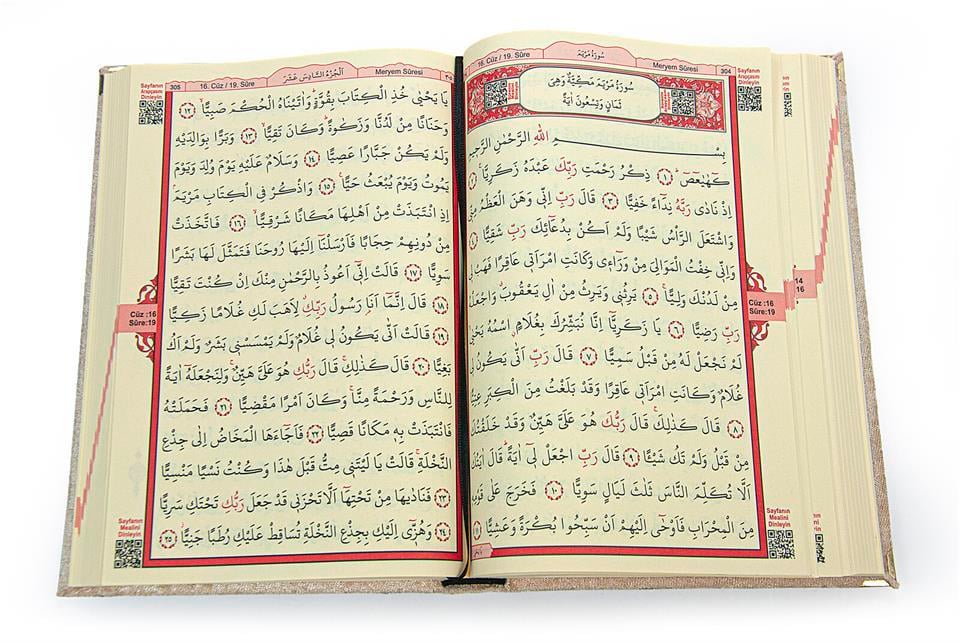 16. Cüz / 19. Sûre
سُورَةُ مَرْيَمَ
Meryem Sûresi
304
Sayfanın
Arapçasını
Dinleyin
سُورَةُ مَرْيَمَ مَكِّيَّةٌ وَهِىَ
ثَمَانٍ وَتِسْعُونَ اٰيَةً
بِسْــمِ اللّٰهِ الرَّحْمٰنِ الرَّحِيمِ
كٓهٰيٰعٓصٓ ﴿١﴾ ذِكْرُ رَحْمَتِ رَبِّكَ عَبْدَهُ زَكَرِيَّا ﴿٢﴾
اِذْ نَادٰى رَبَّهُ نِدَٓاءً خَفِيًّا ﴿٣﴾ قَالَ رَبِّ اِنّٖى وَهَنَ الْعَظْمُ مِنّٖى
وَاشْتَعَلَ الرَّأْسُ شَيْبًا وَلَمْ اَكُنْ بِدُعَٓائِكَ رَبِّ شَقِيًّا ﴿٤﴾
وَاِنّٖى خِفْتُ الْمَوَالِىَ مِنْ وَرَٓاءٖى وَكَانَتِ امْرَاَتٖى عَاقِرًا فَهَبْ لٖى
مِنْ لَدُنْكَ وَلِيًّا ﴿٥﴾ يَرِثُنٖى وَيَرِثُ مِنْ اٰلِ يَعْقُوبَ وَاجْعَلْهُ
رَبِّ رَضِيًّا ﴿٦﴾ يَا زَكَرِيَّٓا اِنَّا نُبَشِّرُكَ بِغُلَامٍ اسْمُهُ يَحْيٰى
لَمْ نَجْعَلْ لَهُ مِنْ قَبْلُ سَمِيًّا ﴿٧﴾ قَالَ رَبِّ اَنّٰى يَكُونُ لٖى
غُلَامٌ وَكَانَتِ امْرَاَتٖى عَاقِرًا وَقَدْ بَلَغْتُ مِنَ الْكِبَرِ عِتِيًّا
﴿٨﴾ قَالَ كَذٰلِكَ قَالَ رَبُّكَ هُوَ عَلَىَّ هَيِّنٌ وَقَدْ خَلَقْتُكَ
مِنْ قَبْلُ وَلَمْ تَكُ شَيْئًا ﴿٩﴾ قَالَ رَبِّ اجْعَلْ لٖٓى اٰيَةً قَالَ اٰيَتُكَ
اَلَّا تُكَلِّمَ النَّاسَ ثَلٰثَ لَيَالٍ سَوِيًّا ﴿١٠﴾ فَخَرَجَ عَلٰى قَوْمِهٖ
مِنَ الْمِحْرَابِ فَاَوْحٰٓى اِلَيْهِمْ اَنْ سَبِّحُوا بُكْرَةً وَعَشِيًّا ﴿١١﴾
Cüz :16
Sûre:19
14
16
Sayfanın
Mealini
Dinleyin
305
16. Cüz / 19. Sûre
اَلْجُزْءُ السَّادِسَ عَشَرَ
Meryem Sûresi
Sayfanın
Arapçasını
Dinleyin
يَا يَحْيٰى خُذِ الْكِتَابَ بِقُوَّةٍ وَاٰتَيْنَاهُ الْحُكْمَ صَبِيًّا ﴿١٢﴾
وَحَنَانًا مِنْ لَدُنَّا وَزَكٰوةً وَكَانَ تَقِيًّا ﴿١٣﴾ وَبَرًّا بِوَالِدَيْهِ
وَلَمْ يَكُنْ جَبَّارًا عَصِيًّا ﴿١٤﴾ وَسَلَامٌ عَلَيْهِ يَوْمَ وُلِدَ وَيَوْمَ
يَمُوتُ وَيَوْمَ يُبْعَثُ حَيًّا ﴿١٥﴾ وَاذْكُرْ فِى الْكِتَابِ مَرْيَمَ
اِذِ انْتَبَذَتْ مِنْ اَهْلِهَا مَكَانًا شَرْقِيًّا ﴿١٦﴾ فَاتَّخَذَتْ
مِنْ دُونِهِمْ حِجَابًا فَاَرْسَلْنَٓا اِلَيْهَا رُوحَنَا فَتَمَثَّلَ لَهَا بَشَرًا
سَوِيًّا ﴿١٧﴾ قَالَتْ اِنّٖٓى اَعُوذُ بِالرَّحْمٰنِ مِنْكَ اِنْ كُنْتَ تَقِيًّا
﴿١٨﴾ قَالَ اِنَّمَٓا اَنَا۬ رَسُولُ رَبِّكِ لِاَهَبَ لَكِ غُلَامًا زَكِيًّا
﴿١٩﴾ قَالَتْ اَنّٰى يَكُونُ لٖى غُلَامٌ وَلَمْ يَمْسَسْنٖى بَشَرٌ وَلَمْ اَكُ
بَغِيًّا ﴿٢٠﴾ قَالَ كَذٰلِكِ قَالَ رَبُّكِ هُوَ عَلَىَّ هَيِّنٌ وَلِنَجْعَلَهُٓ اٰيَةً
لِلنَّاسِ وَرَحْمَةً مِنَّا وَكَانَ اَمْرًا مَقْضِيًّا ﴿٢١﴾ فَحَمَلَتْهُ
فَانْتَبَذَتْ بِهٖ مَكَانًا قَصِيًّا ﴿٢٢﴾ فَاَجَٓاءَهَا الْمَخَاضُ اِلٰى جِذْعِ
النَّخْلَةِ قَالَتْ يَا لَيْتَنٖى مِتُّ قَبْلَ هٰذَا وَكُنْتُ نَسْيًا مَنْسِيًّا
﴿٢٣﴾ فَنَادٰيهَا مِنْ تَحْتِهَٓا اَلَّا تَحْزَنٖى قَدْ جَعَلَ رَبُّكِ تَحْتَكِ سَرِيًّا
﴿٢٤﴾ وَهُزّٖٓى اِلَيْكِ بِجِذْعِ النَّخْلَةِ تُسَاقِطْ عَلَيْكِ رُطَبًا جَنِيًّا ﴿٢٥﴾
Cüz :16
Sûre:19
Sayfanın
Mealini
Dinleyin